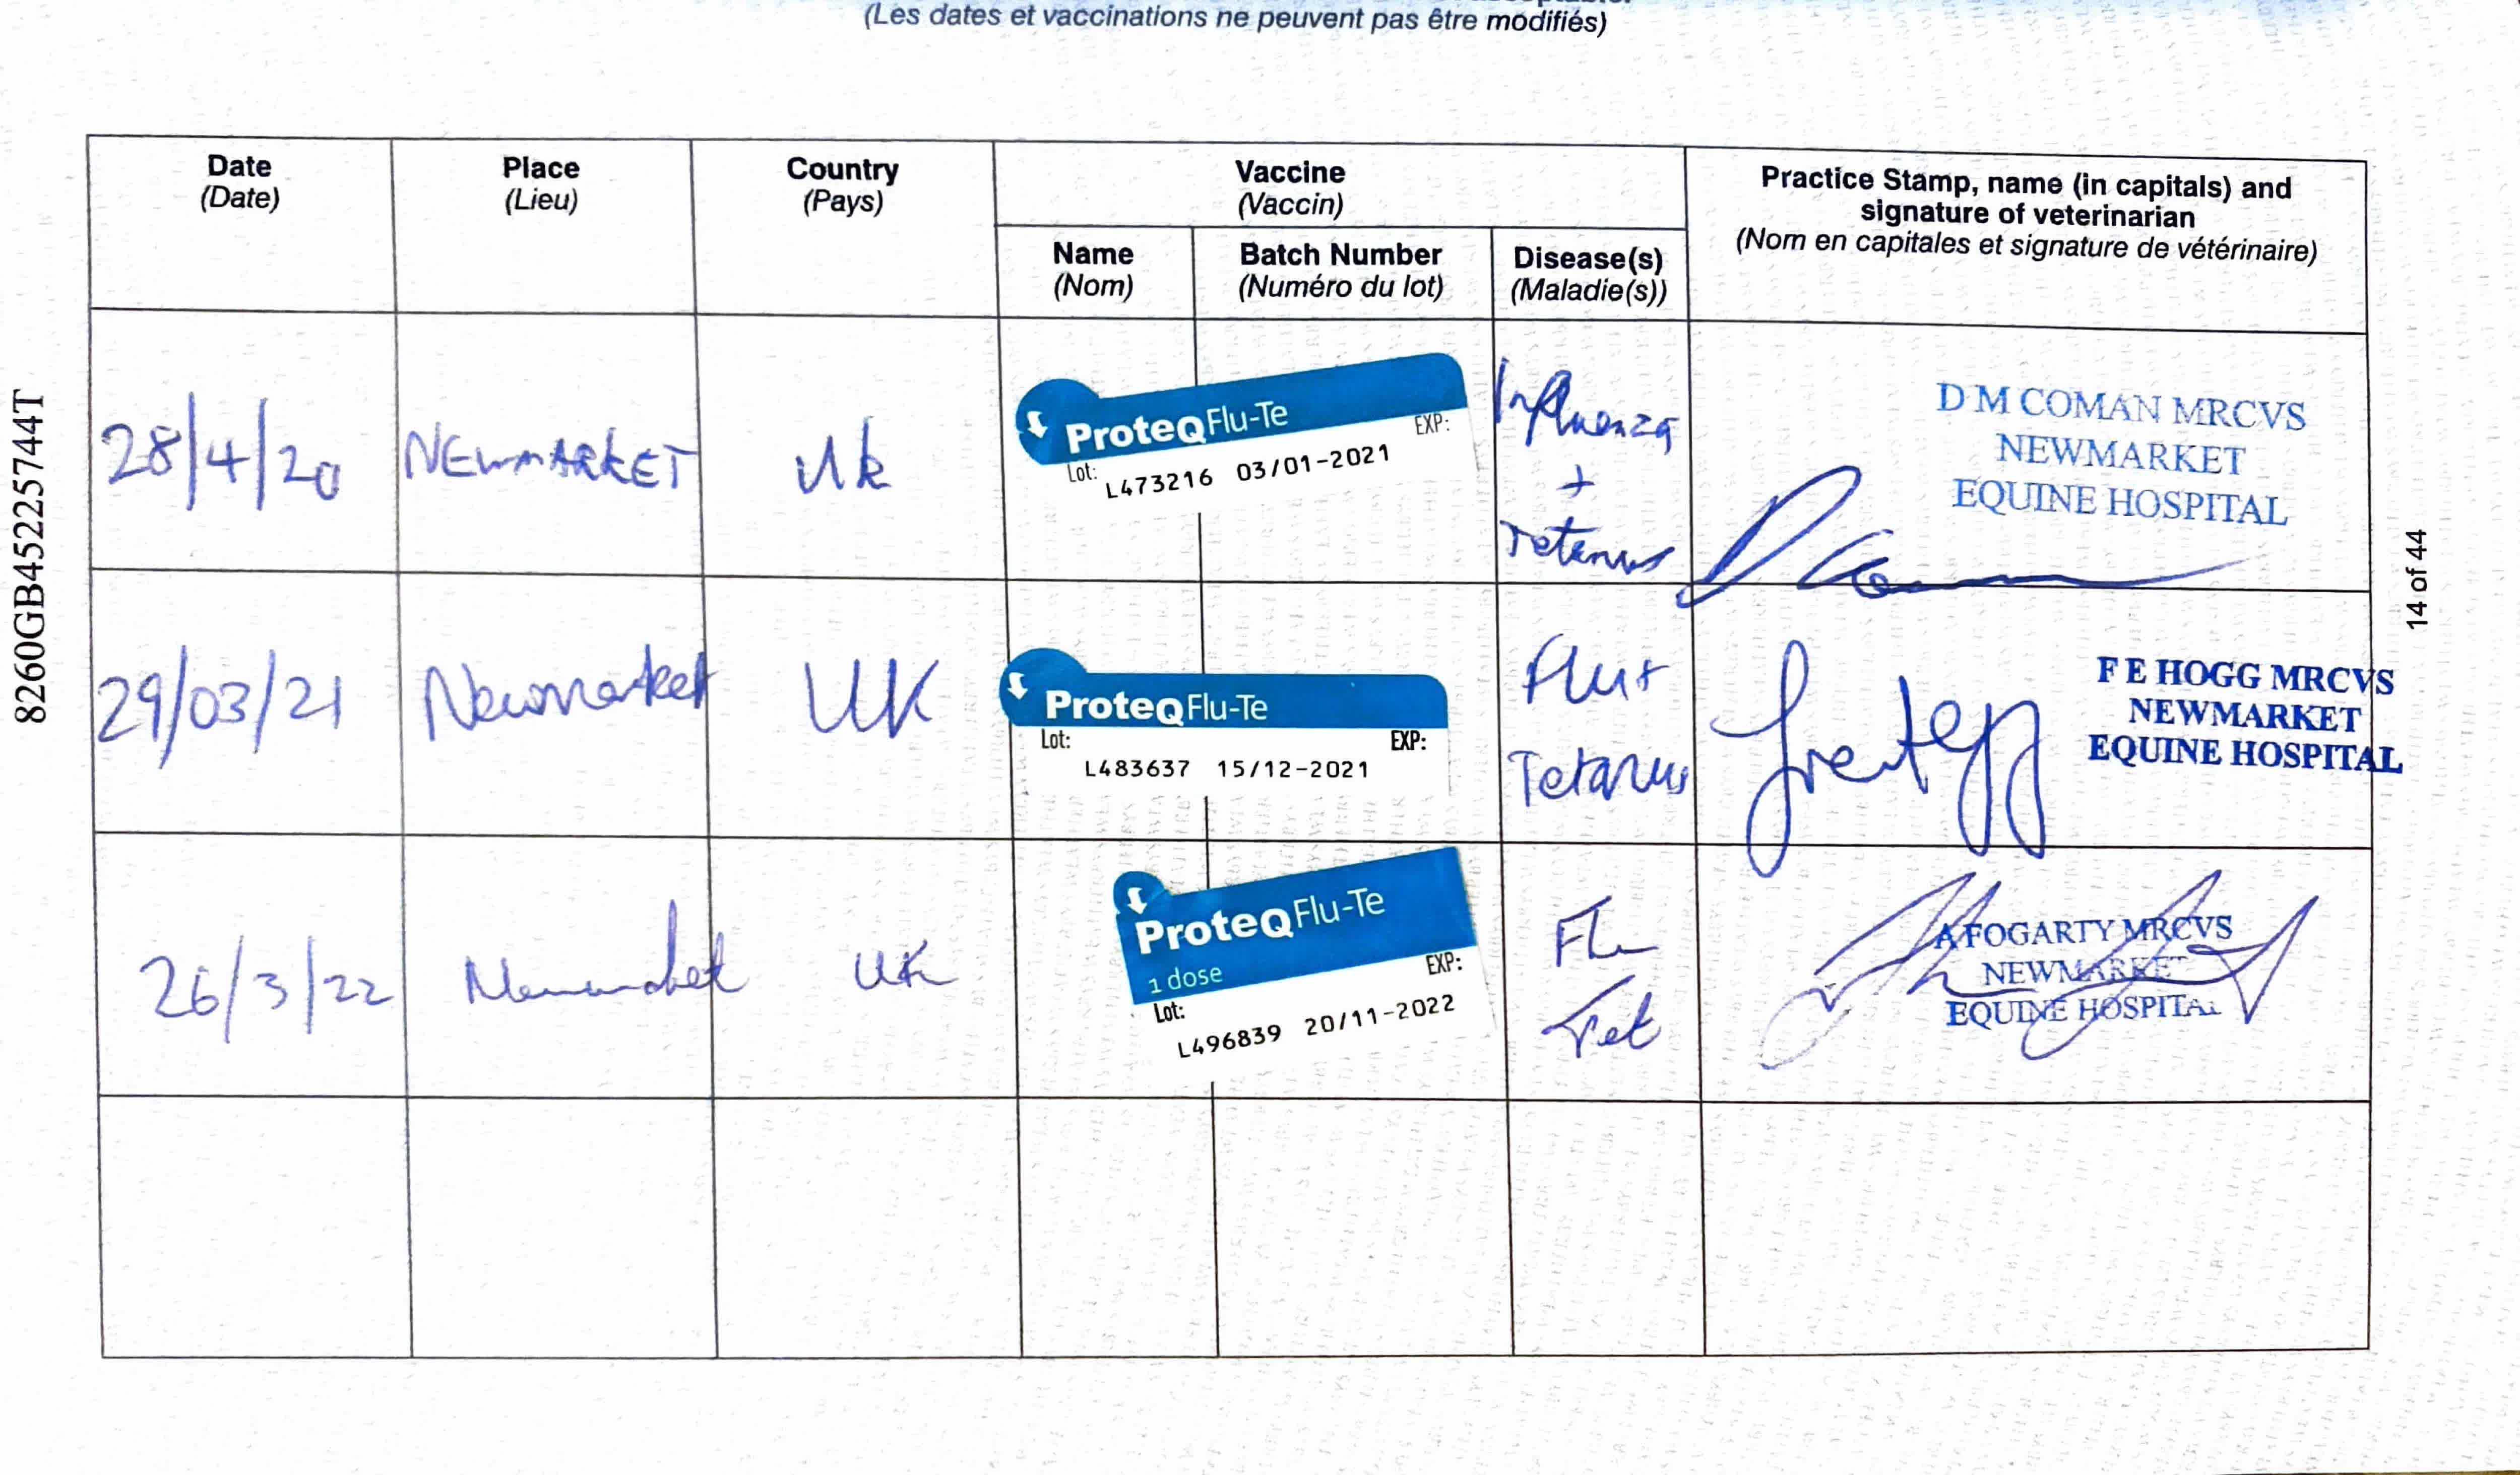 (Les dates et vaccinations ne peuvent pas être modifiés)
Date
(Date)
Place
(Lieu)
Country
(Pays)
Vaccine
(Vaccin)
Name
(Nom)
Batch Number
(Numéro du lot)
Disease(s)
(Maladie(s))
Practice Stamp, name (in capitals) and
signature of veterinarian
(Nom en capitales et signature de vétérinaire)
28/4/20
NEWMARKET
Uk
ProteqFlu-Te
Lot: EXP:
L473216 03/01-2021
Influenza
+
Tetanus
D M COMAN MRCVS
NEWMARKET
EQUINE HOSPITAL
29/03/21
Newmarket
UK
ProteqFlu-Te
Lot: EXP:
L483637 15/12-2021
Flu+
Tetanus
F E HOGG MRCVS
NEWMARKET
EQUINE HOSPITAL
26/3/22
Newmarket
UK
ProteqFlu-Te
1 dose
Lot: EXP:
L496839 20/11-2022
Flu
Tet
A FOGARTY MRCVS
NEWMARKET
EQUINE HOSPITAL
8260GB452225744T
14 of 44